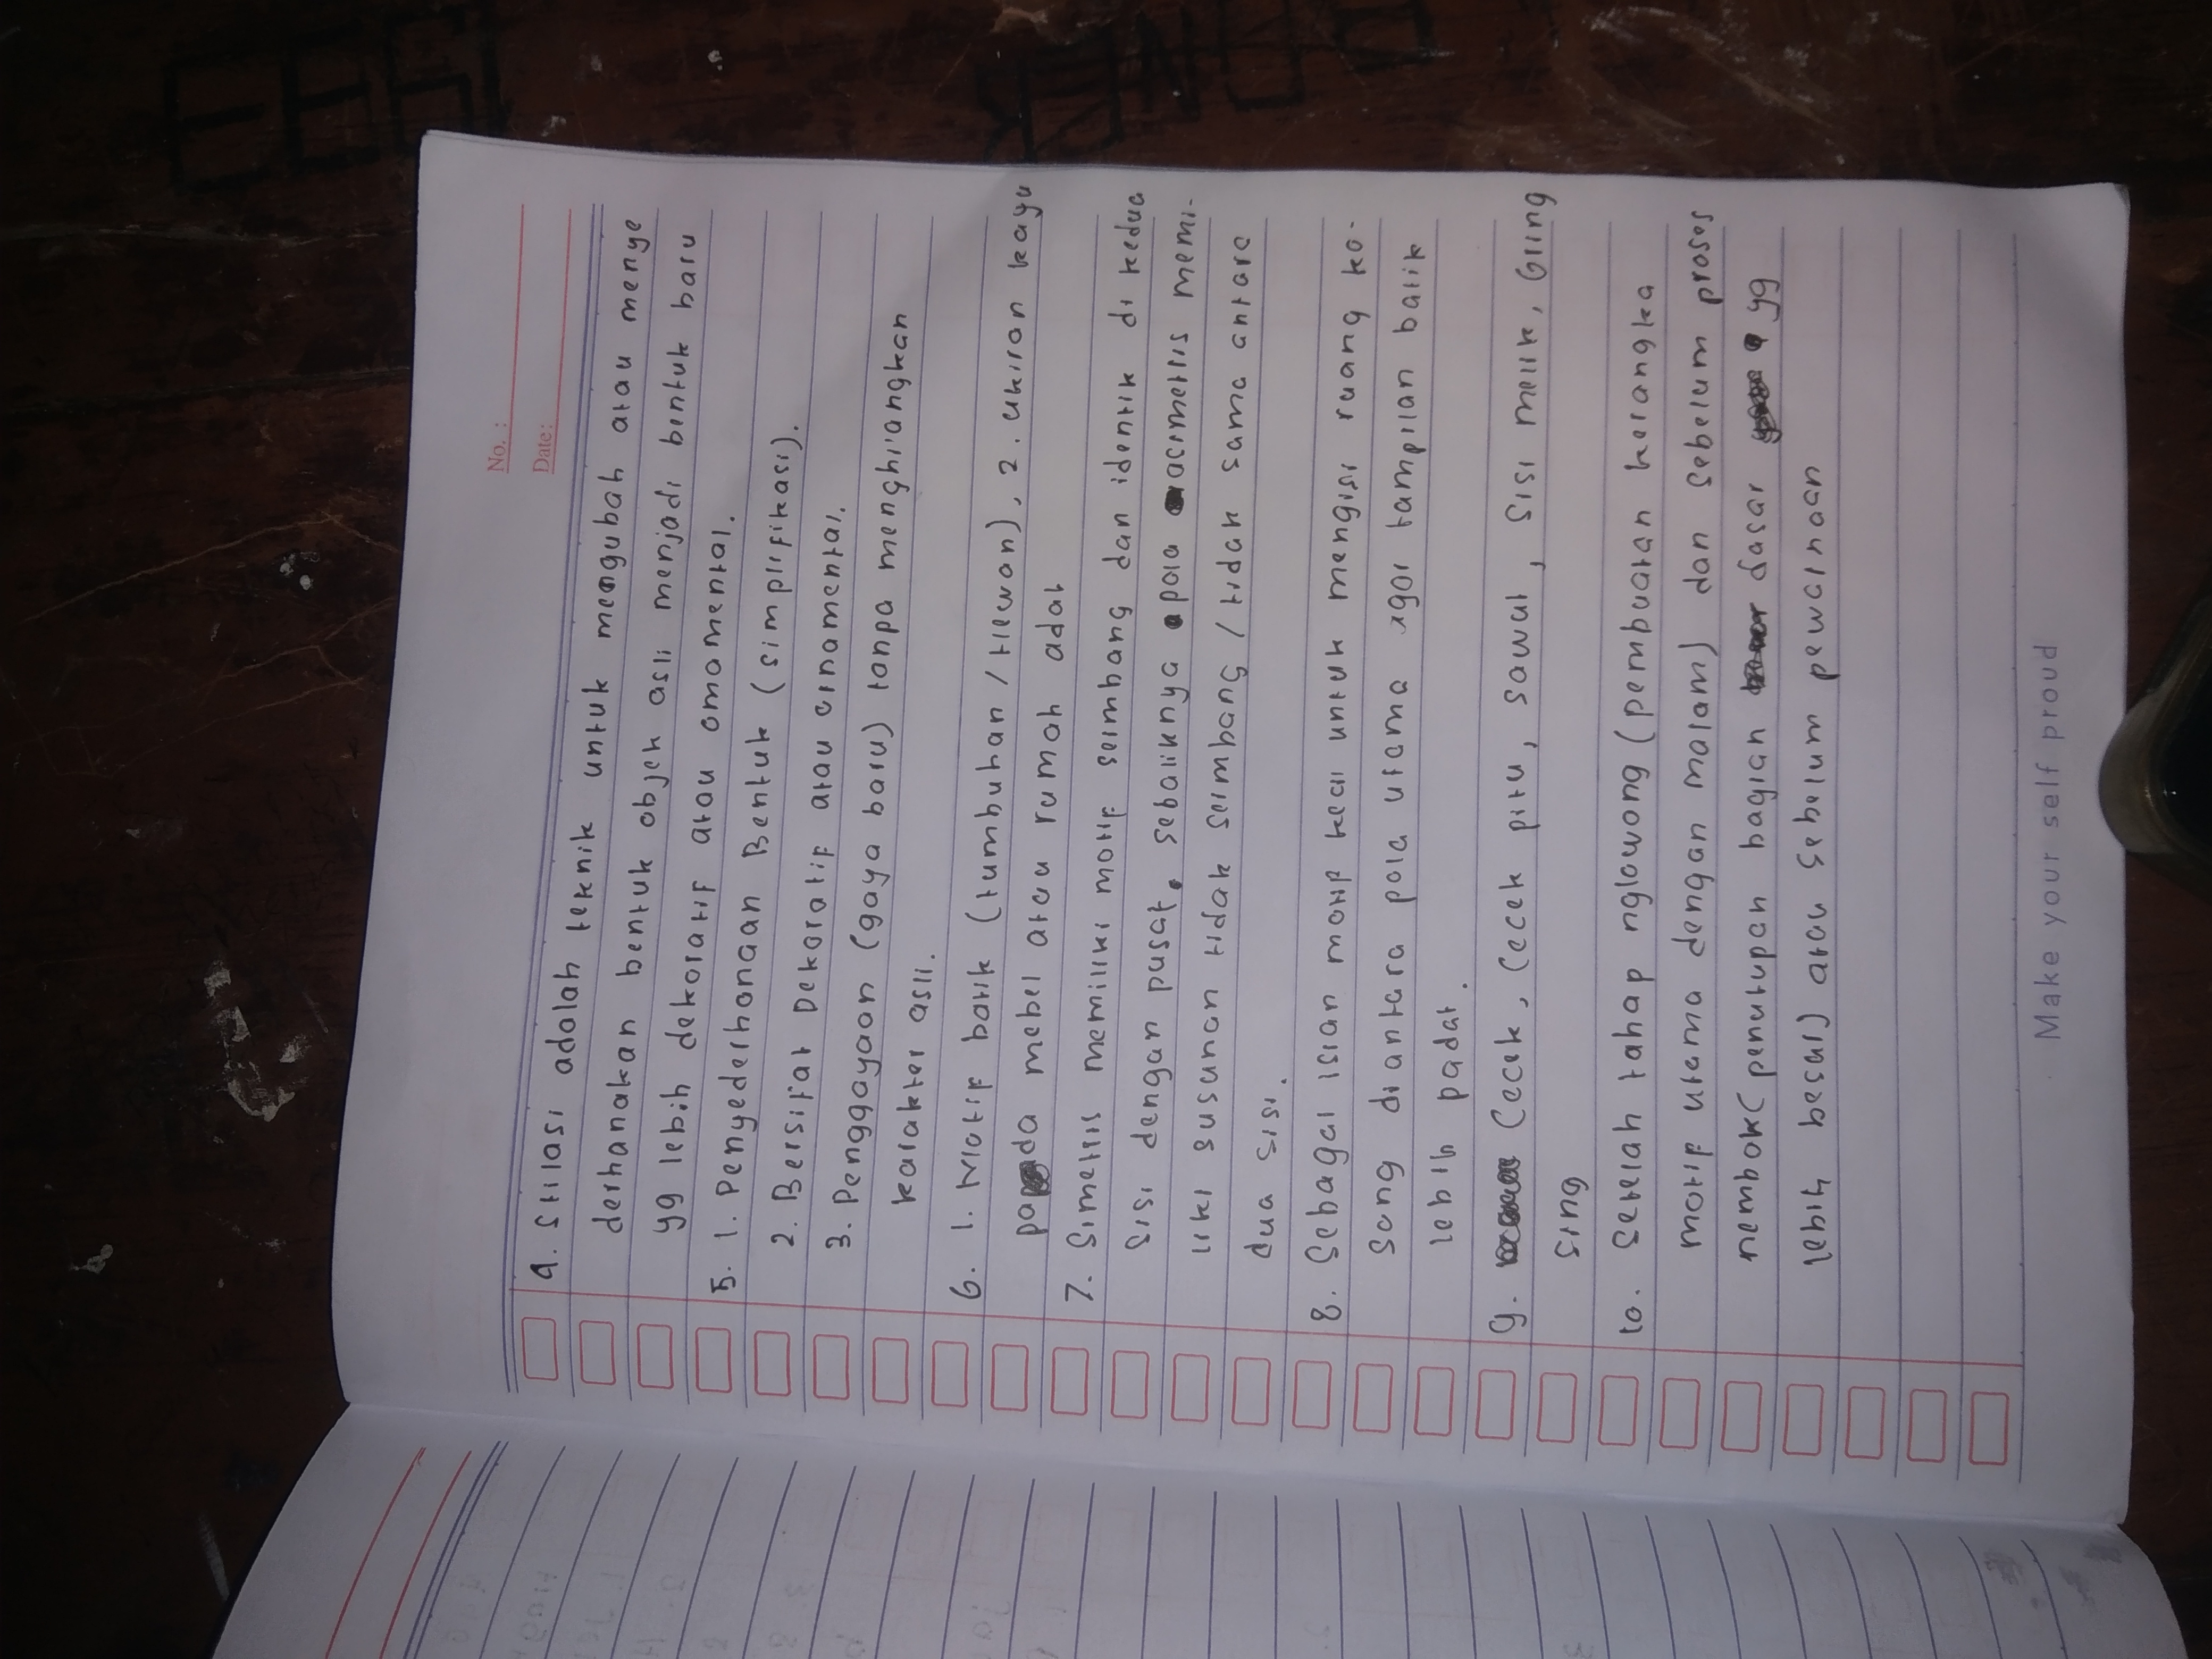 No. :
Date:
4. Stilasi adalah teknik untuk mengubah atau menye
derhanakan bentuk objek asli menjadi bentuk baru
yg lebih dekoratif atau ornamental.
5. 1. Penyederhanaan Bentuk (simplifikasi).
2. Bersifat Dekoratif atau ornamental.
3. Penggayaan (gaya baru) tanpa menghilangkan
karakter asli.
6. 1. Motif batik (tumbuhan / hewan), 2. ukiran kayu
pada mebel atau rumah adat
7. Simetris memiliki motif seimbang dan identik di kedua
sisi dengan pusat. sebaliknya pola asimetris memi-
liki susunan tidak seimbang / tidak sama antara
dua sisi.
8. Sebagai isian motif kecil untuk mengisi ruang ko-
song diantara pola utama agar tampilan batik
lebih padat.
9. Cecek, Cecek pitu, sawut, sisi melik, Gring
sing
10. Setelah tahap nglowong (pembuatan kerangka
motif utama dengan malam) dan sebelum proses
nembok (penutupan bagian dasar yg
lebih besar) atau sebelum pewarnaan
Make your self proud